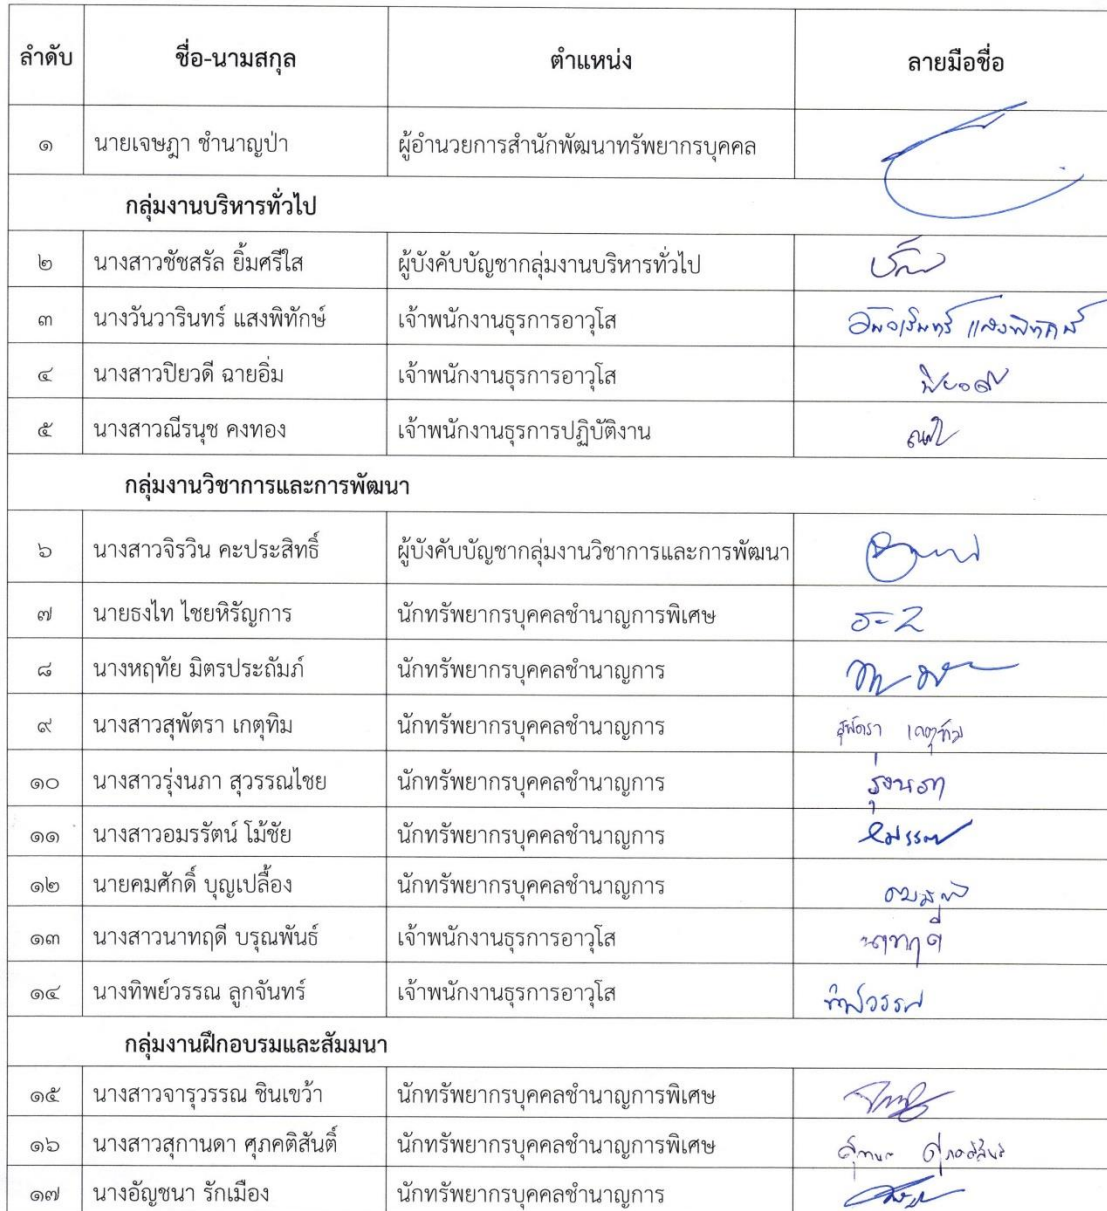 ลำดับ ชื่อ-นามสกุล ตำแหน่ง ลายมือชื่อ
๑ นายเจษฎา ชำนาญป่า ผู้อำนวยการสำนักพัฒนาทรัพยากรบุคคล
กลุ่มงานบริหารทั่วไป
๒ นางสาวชัชสรัล ยิ้มศรีใส ผู้บังคับบัญชากลุ่มงานบริหารทั่วไป
๓ นางวันวารินทร์ แสงพิทักษ์ เจ้าพนักงานธุรการอาวุโส วันวารินทร์ แสงพิทักษ์
๔ นางสาวปิยวดี ฉายอิ่ม เจ้าพนักงานธุรการอาวุโส ปิยวดี
๕ นางสาวณีรนุช คงทอง เจ้าพนักงานธุรการปฏิบัติงาน
กลุ่มงานวิชาการและการพัฒนา
๖ นางสาวจิรวิน คะประสิทธิ์ ผู้บังคับบัญชากลุ่มงานวิชาการและการพัฒนา
๗ นายธงไท ไชยหิรัญการ นักทรัพยากรบุคคลชำนาญการพิเศษ
๘ นางหฤทัย มิตรประถัมภ์ นักทรัพยากรบุคคลชำนาญการ
๙ นางสาวสุพัตรา เกตุทิม นักทรัพยากรบุคคลชำนาญการ สุพัตรา เกตุทิม
๑๐ นางสาวรุ่งนภา สุวรรณไชย นักทรัพยากรบุคคลชำนาญการ รุ่งนภา
๑๑ นางสาวอมรรัตน์ โม้ชัย นักทรัพยากรบุคคลชำนาญการ
๑๒ นายคมศักดิ์ บุญเปลื้อง นักทรัพยากรบุคคลชำนาญการ
๑๓ นางสาวนาทฤดี บรุณพันธ์ เจ้าพนักงานธุรการอาวุโส นาทฤดี
๑๔ นางทิพย์วรรณ ลูกจันทร์ เจ้าพนักงานธุรการอาวุโส ทิพย์วรรณ
กลุ่มงานฝึกอบรมและสัมมนา
๑๕ นางสาวจารุวรรณ ชินเขว้า นักทรัพยากรบุคคลชำนาญการพิเศษ
๑๖ นางสาวสุกานดา ศุภคติสันติ์ นักทรัพยากรบุคคลชำนาญการพิเศษ สุกานดา ศุภคติสันติ์
๑๗ นางอัญชนา รักเมือง นักทรัพยากรบุคคลชำนาญการ